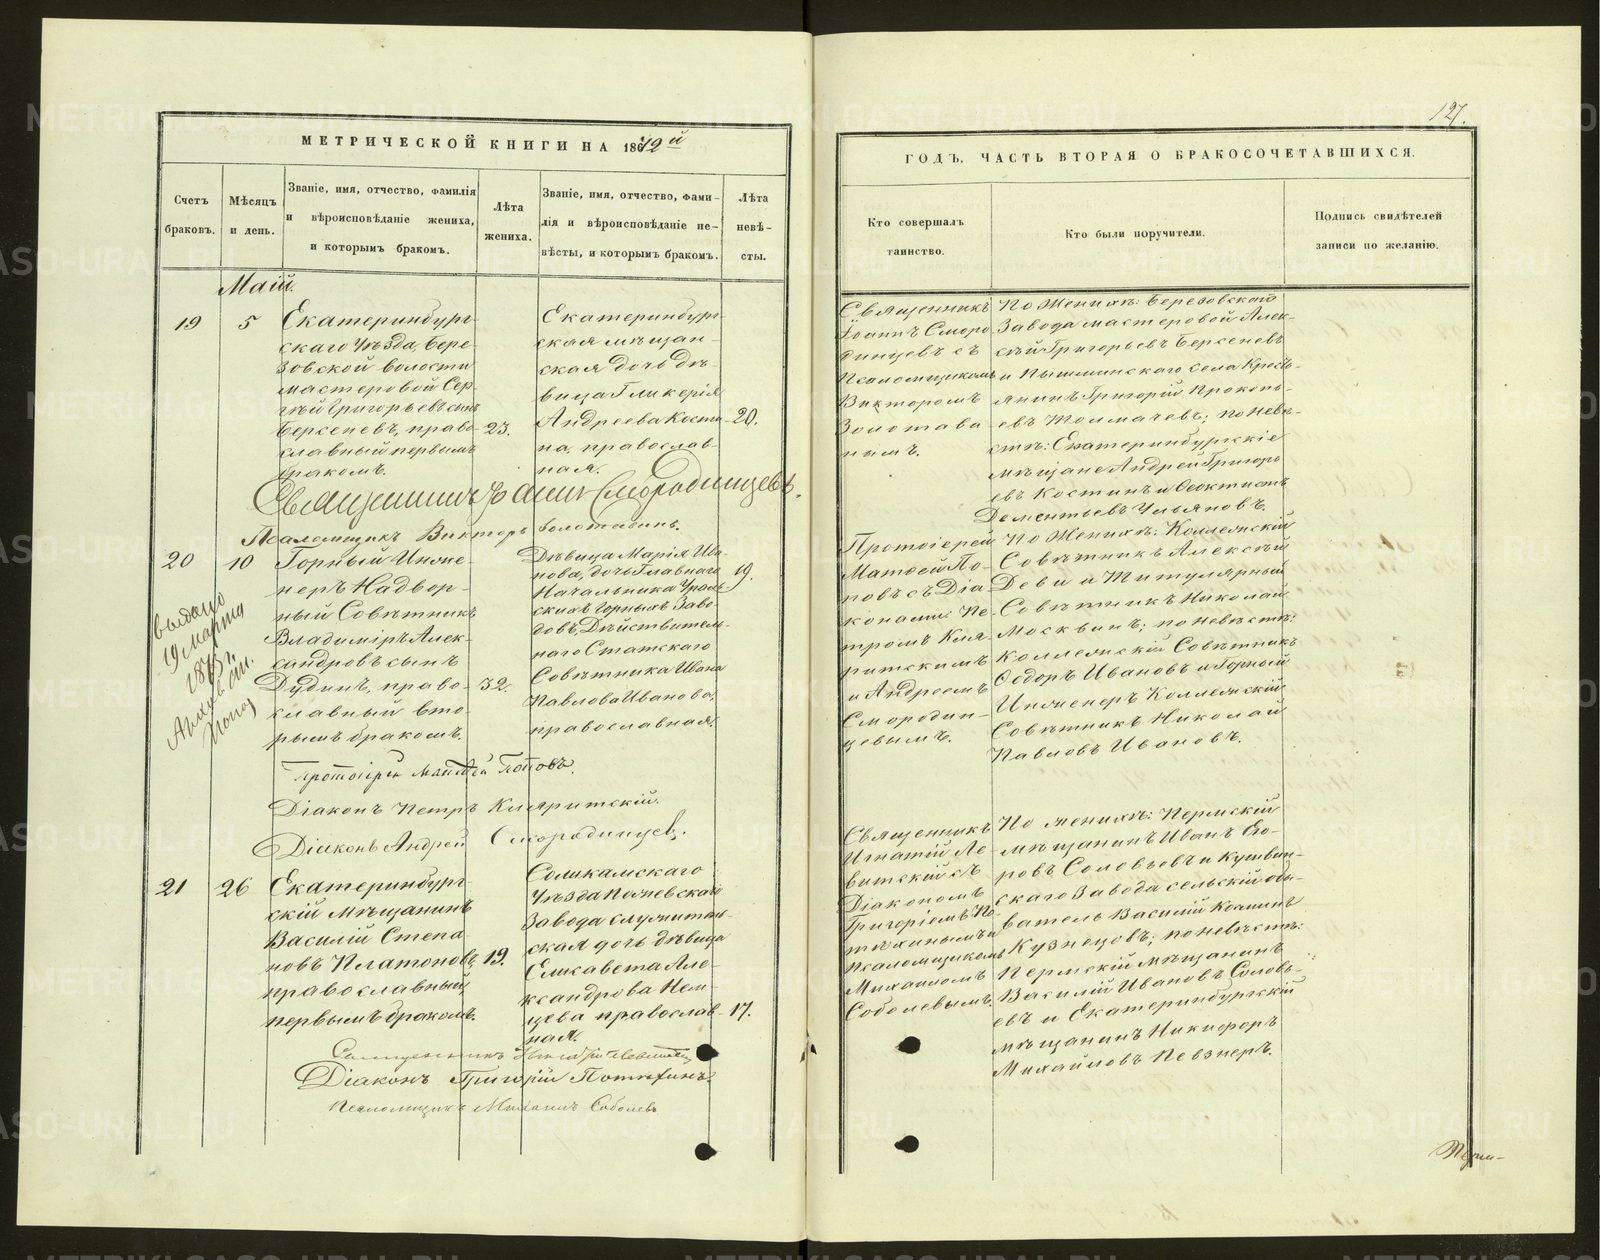 МЕТРИЧЕСКОЙ КНИГИ НА 1872й
Счетъ браковъ.
Мѣсяцъ и день.
Званіе, имя, отчество, фамилія
и вѣроисповѣданіе жениха,
и которымъ бракомъ.
Лѣта
жениха.
Званіе, имя, отчество, фами-
лія и вѣроисповѣданіе не-
вѣсты, и которымъ бракомъ.
Лѣта
невѣ-
сты.
Маій.
19
5
Екатеринбург-
скаго Уѣзда, Бере-
зовской волости
мастеровой Сер-
гѣй Григорьевъ сынъ
Берсеневъ, право-
славный первымъ
бракомъ.
23.
Екатеринбург-
ская мѣщан-
ская дочь дѣ-
вица Гликерія
Андреева Кости-
на, православ-
ная.
20.
Священникъ Іоаннъ Смородинцевъ.
Псаломщикъ Викторъ Золотавинъ.
20
10
Горный Инже-
неръ Надвор-
ный Совѣтникъ
Владиміръ Алек-
сандровъ сынъ
Дудинъ, право-
славный вто-
рымъ бракомъ.
32.
Дѣвица Марія Ива-
нова, дочь Главнаго
Начальника Ураль-
скихъ Горныхъ Заво-
довъ, Дѣйствитель-
наго Статскаго
Совѣтника Ивана
Павлова Иванова,
православная.
19.
выдано
19 марта
1875 г.
Протоіерей Матѳей Поповъ.
Діаконъ Петръ Кляритскій.
Діаконъ Андрей Смородинцевъ.
21
26
Екатеринбург-
скій Мѣщанинъ
Василій Степа-
новъ Платоновъ,
православный,
первымъ бракомъ.
19.
Соликамскаго
Уѣзда Пожевскаго
Завода служитель-
ская дочь дѣвица
Елисавета Але-
ксандрова Нем-
цева православ-
ная.
17.
Священникъ Игнатій Левитскій
Діаконъ Григорій Потѣхинъ.
Псаломщикъ Михаилъ Соболевъ
127.
ГОДЪ, ЧАСТЬ ВТОРАЯ О БРАКОСОЧЕТАВШИХСЯ.
Кто совершалъ
таинство.
Кто были поручители.
Подпись свидѣтелей
записи по желанію.
Священникъ
Іоаннъ Сморо-
динцевъ съ
Псаломщикомъ
Викторомъ
Золотави-
нымъ.
По Женихѣ: Березовскаго
Завода мастеровой Алек-
сѣй Григорьевъ Берсеневъ
и Пышминскаго села Кресть-
янинъ Григорій Прокопь-
евъ Толмачевъ; по невѣ-
стѣ: Екатеринбургскіе
мѣщане Андрей Григорь-
евъ Костинъ и Ѳеоктистъ
Дементьевъ Ульяновъ.
Протоіерей
Матѳей По-
повъ съ Діа-
конами: Пе-
тромъ Кля-
ритскимъ
и Андреемъ
Смородин-
цевымъ.
По Женихѣ: Коллежскій
Совѣтникъ Алексѣй
Деви и Титулярный
Совѣтникъ Николай
Москвинъ; по невѣстѣ:
Коллежскій Совѣтникъ
Ѳодоръ Ивановъ и Горный
Инженеръ Коллежскій
Совѣтникъ Николай
Павловъ Ивановъ.
Священникъ
Игнатій Ле-
витскій съ
Діакономъ
Григоріемъ По-
тѣхинымъ и
Псаломщикомъ
Михаиломъ
Соболевымъ.
По женихѣ: Пермскій
мѣщанинъ Иванъ Его-
ровъ Соловьевъ и Кушвин-
скаго Завода сельскій обы-
ватель Василій Козминъ
Кузнецовъ; по невѣстѣ:
Пермскій мѣщанинъ
Василій Ивановъ Соловь-
евъ и Екатеринбургскій
мѣщанинъ Никифоръ
Михайловъ Певзнеръ.